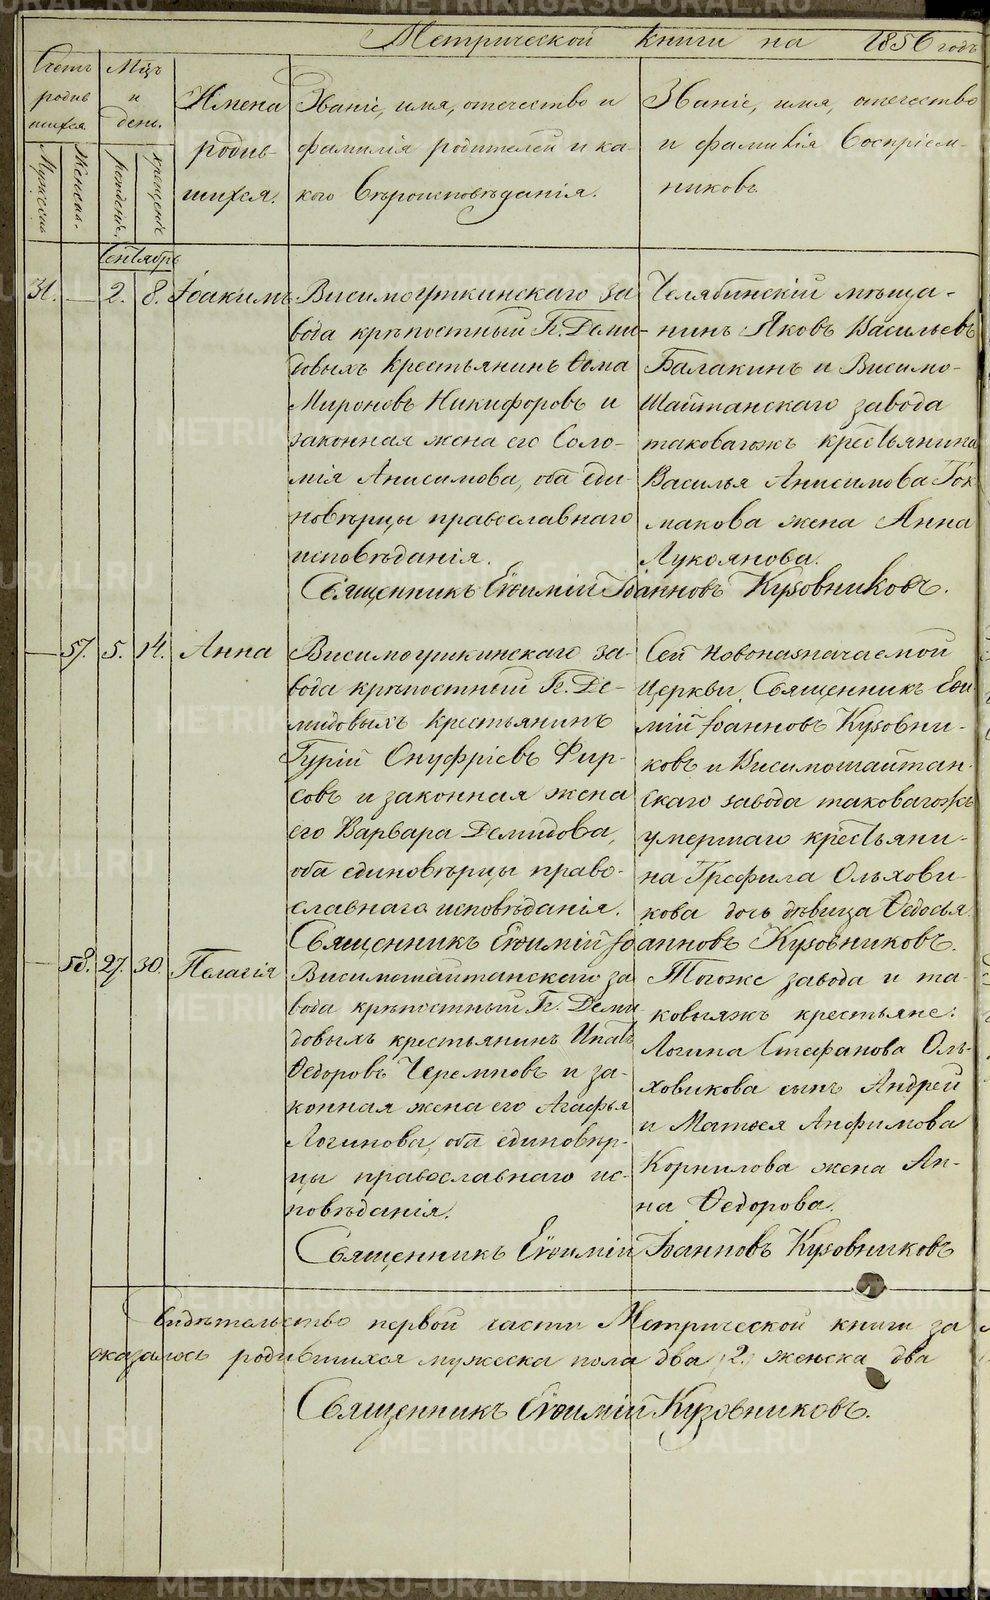 Метрической книги на 1856 годъ
Счетъ родившихся
Мужеска
Женска.
Мцъ и день.
рожденія.
крещенія
Имена родившихся.
Званіе, имя, отечество и
фамилія родителей и ка-
кого вѣроисповѣданія.
Званіе, имя, отечество
и фамилія Воспріем-
никовъ
Сентябрь
31.
2.
8.
Іоакимъ
Висимоуткинскаго за
вода крѣпостный Гг. Деми-
довыхъ крестьянинъ Ѳома
Мироновъ Никифоровъ и
законная жена его Соло-
мія Анисимова, оба еди-
новѣрцы православнаго
исповѣданія.
Челябинскій мѣща-
нинъ Яковъ Васильевъ
Балакинъ и Висимо-
Шайтанскаго завода
таковагожъ крестьянина
Василья Анисимова Ток
макова жена Анна
Лукоянова.
Священникъ Евѳимій Іоанновъ Кузовниковъ.
57.
5.
14.
Анна
Висимоуткинскаго за-
вода крѣпостный Гг. Де-
мидовыхъ крестьянинъ
Гурій Онуфріевъ Фир-
совъ и законная жена
его Варвара Демидова,
оба единовѣрцы право-
славнаго исповѣданія.
Сей новоназначаемой
Церкви Священникъ Евѳи
мій Іоанновъ Кузовни-
ковъ и Висимошайтан-
скаго завода таковагожъ
умершаго крестьяни-
на Трефила Ольхови-
кова дочь дѣвица Ѳедосья
Священникъ Евѳимій Іоанновъ Кузовниковъ.
58.
27.
30.
Пелагія
Висимошайтанскаго за
вода крѣпостный Гг. Деми
довыхъ крестьянинъ Ипатъ
Ѳедоровъ Черемновъ и за-
конная жена его Агафья
Логинова, оба единовѣр-
цы православнаго ис-
повѣданія.
Тогоже завода и та-
ковыяжъ крестьяне:
Логина Стефанова Оль-
ховикова сынъ Андрей
и Матѳея Анфимова
Корнилова жена Ан-
на Ѳедорова.
Священникъ Евѳимій Іоанновъ Кузовниковъ
Свидѣтельство первой части Метрической книги за
оказалось родившихся мужеска пола два 2. женска два
Священникъ Евѳимій Кузовниковъ.
METRIKI.GASO-URAL.RU